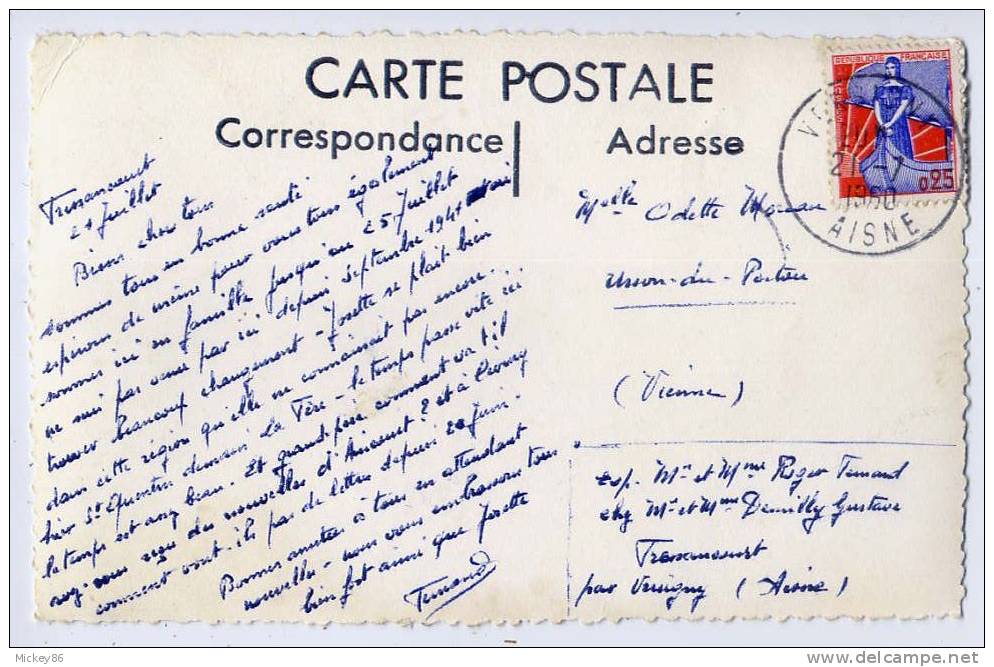 CARTE POSTALE
Correspondance
Adresse
REPUBLIQUE FRANÇAISE
0,25
21 -7
1960
AISNE
21 Juillet
Biens chers tous
sommes tous en bonne santé
espérons de même pour vous tous également
sommes ici en famille jusqu'au 25 Juillet
ne suis pas venu par ici depuis septembre 1941
trouve beaucoup changement - Josette se plait bien
dans cette région qu'elle ne connaissait pas encore...
hier St Quentin demain La Fère - le temps passe vite ici
le temps est assez beau. Et grand-père comment va t'il
avez-vous reçu des nouvelles d' ? et à
comment vont-ils pas de lettre depuis 20 Juin.
Bonnes amitiés à tous en attendant
nouvelles - nous vous embrassons tous
bien fort ainsi que Josette
Melle Odette
Usson-du-Poitou
(Vienne)
Exp. Mr et Mme Roger
chez Mr et Mme Gustave
par Versigny (Aisne)
Mickey86
delcampe.net